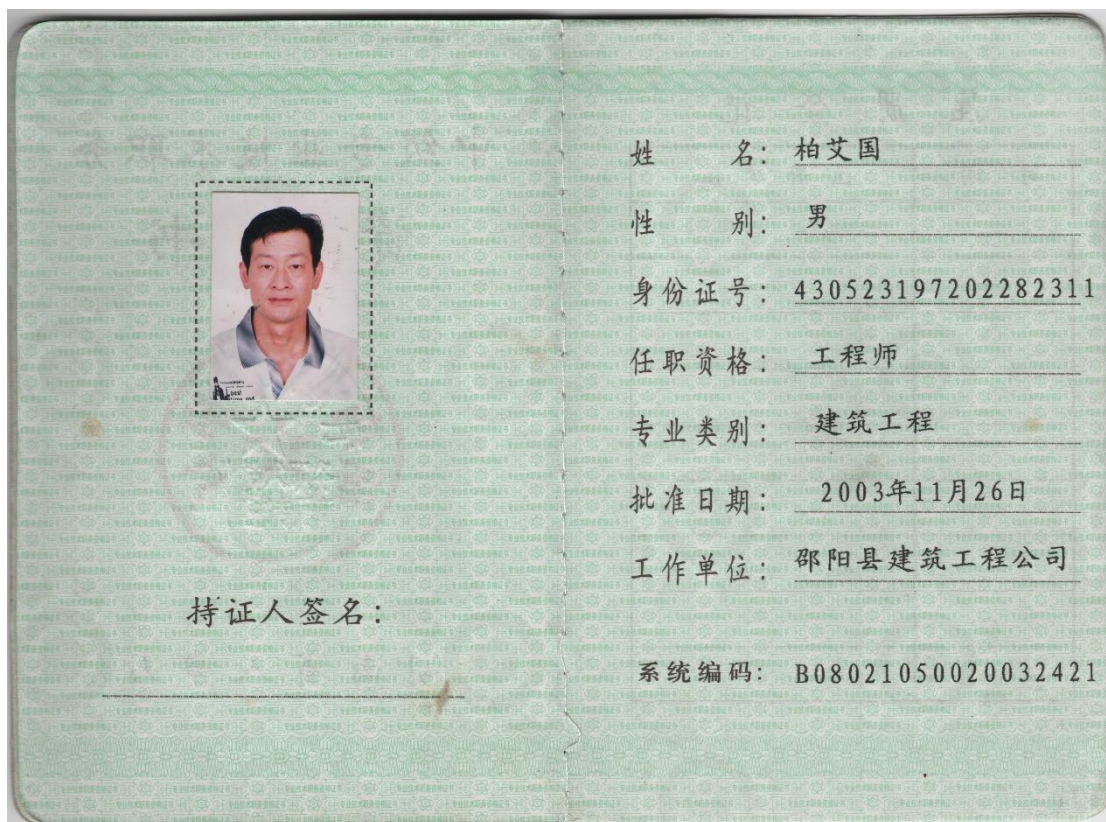 持证人签名:
姓 名: 柏艾国
性 别: 男
身份证号: 430523197202282311
任职资格: 工程师
专业类别: 建筑工程
批准日期: 2003年11月26日
工作单位: 邵阳县建筑工程公司
系统编码: B08021050020032421